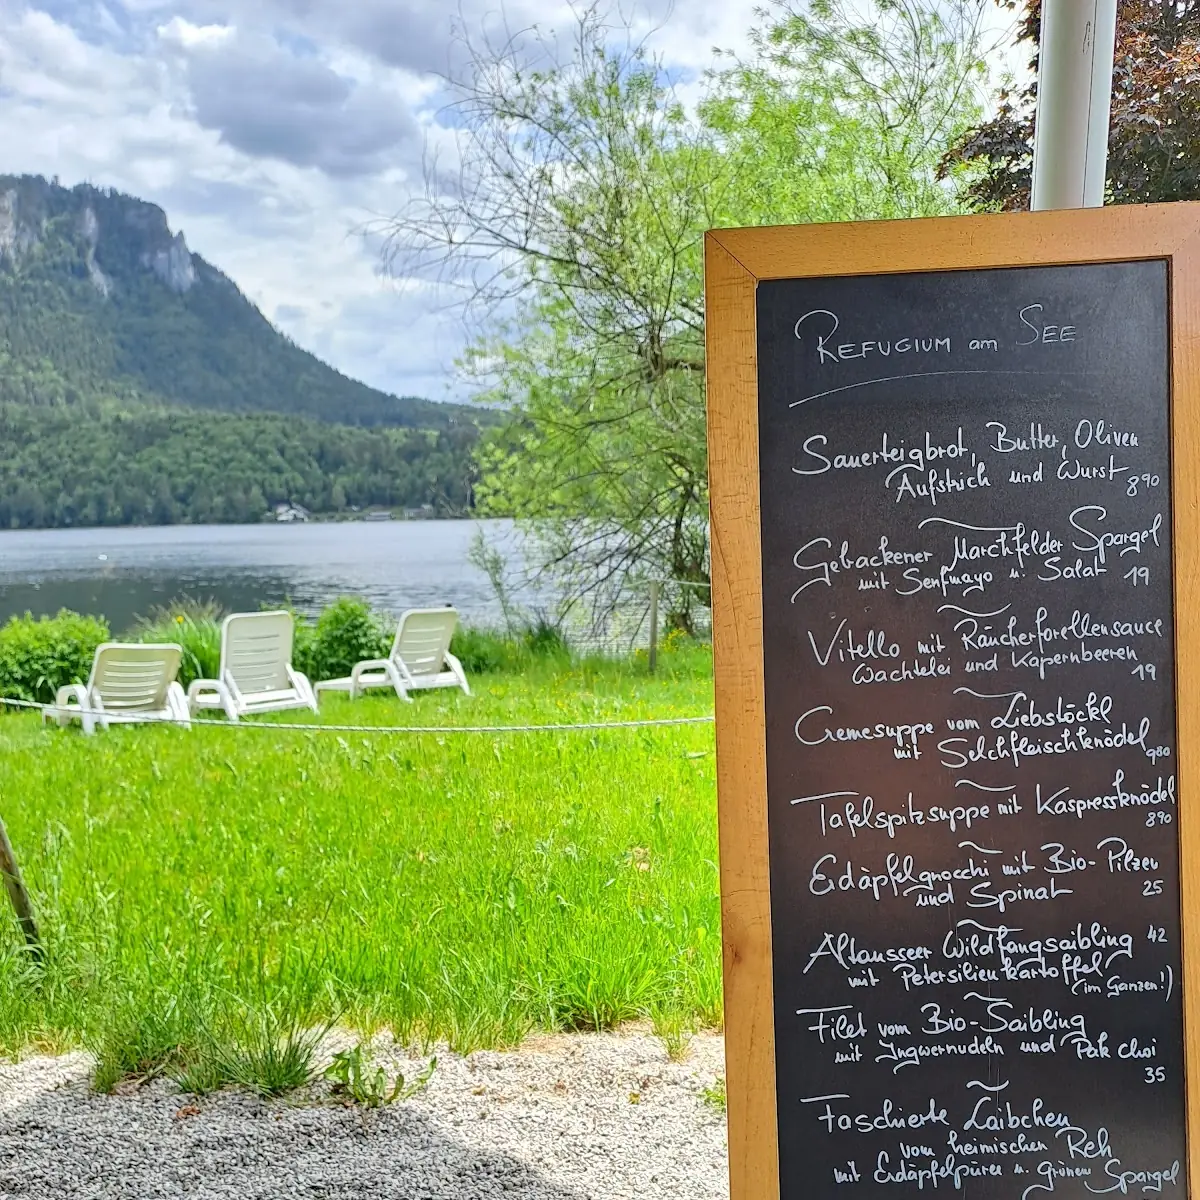 REFUGIUM am SEE
Sauerteigbrot, Butter, Oliven
Aufstrich und Wurst 8 90
Gebackener Marchfelder Spargel
mit Senfmayo u. Salat 19
Vitello mit Räucherforellensauce
Wachtelei und Kapernbeeren
19
Cremesuppe vom Liebstöckl
mit Selchfleischknödel 9 80
Tafelspitzsuppe mit Kaspressknödel
8 90
Erdäpfelgnocchi mit Bio-Pilzen
und Spinat 25
Altausseer Wildfangsaibling 42
mit Petersilienkartoffel
(im Ganzen!)
Filet vom Bio-Saibling
mit Ingwernudeln und Pak Choi
35
Faschierte Laibchen
vom heimischen Reh
mit Erdäpfelpüree u. grünem Spargel